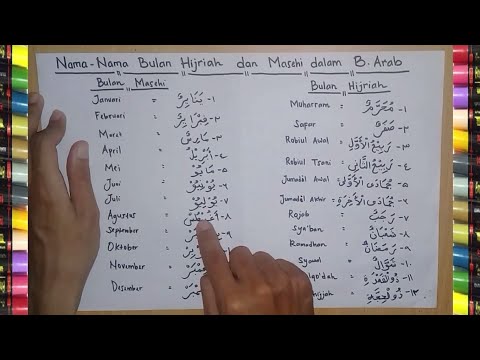 Nama-Nama Bulan Hijriah dan Masehi dalam B. Arab
Bulan Masehi
Januari = ١- يَنَايِرُ
Februari = ٢- فِبْرَايِرُ
Maret = ٣- مَارِسُ
April = ٤- أَبْرِيْلُ
Mei = ٥- مَايُوْ
Juni = ٦- يُوْنِيُوْ
Juli = ٧- يُوْلِيُوْ
Agustus = ٨- أَغُسْطُسْ
September =
Oktober =
November =
Desember =
Bulan Hijriah
Muharram = ١- مُحَرَّمٌ
Safar = ٢- صَفَرٌ
Robiul Awal = ٣- رَبِيْعُ الْأَوَّلِ
Robiul Tsani = ٤- رَبِيْعُ الثَّانِي
Jumadal Awal = ٥- جُمَادَى الْأُوْلَى
Jumadal Akhir = ٦- جُمَادَى الْأَخِرَةِ
Rajab = ٧- رَجَبٌ
Sya'ban = ٨- شَعْبَانُ
Ramadhan = ٩- رَمَضَانُ
Syawal = ١٠- شَوَّالٌ
١١- ذُو الْقَعْدَةِ
١٢- ذُو لْحِجَّةِ